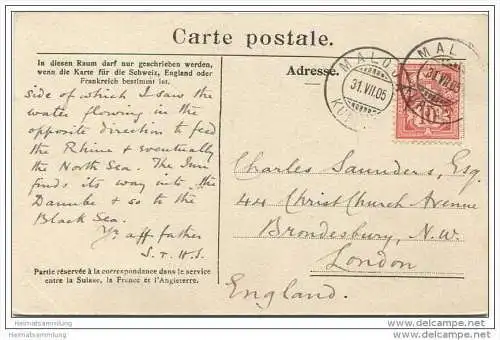 Carte postale.
In diesen Raum darf nur geschrieben werden,
wenn die Karte für die Schweiz, England oder
Frankreich bestimmt ist.
Adresse.
side of which I saw the
water flowing in the
opposite direction to feed
the Rhine & eventually
the North Sea. The Inn
finds its way into the
Danube & so to the
Black Sea.
Yr. aff father
S. T. H. S.
Partie réservée à la correspondance dans le service
entre la Suisse, la France et l'Angleterre.
MALOJA
31.VII.05
MAL
31.VII.05
Charles Saunders, Esq.
44 Christ Church Avenue
Brondesbury, N.W.
London
England.
Heimatsammlung
http://Heimatsammlung
www.delcampe.net